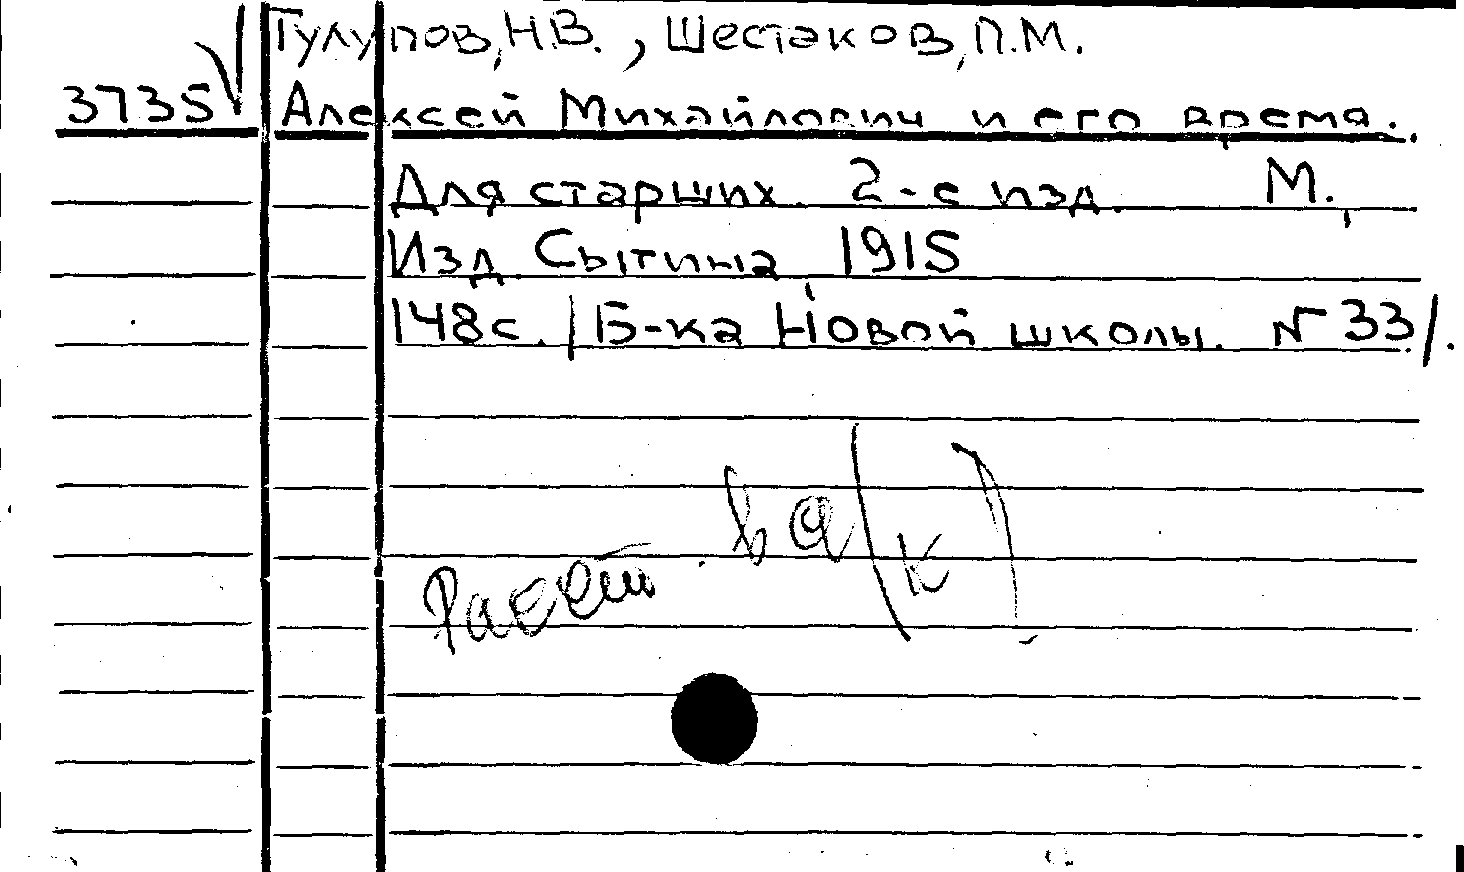 Тулупов, Н.В., Шестаков, П.М.
3735 Алексей Михайлович и его время.
Для старших. 2-е изд. М.,
Изд. Сытина, 1915
148с. /Б-ка Новой школы. № 33/.
(к)